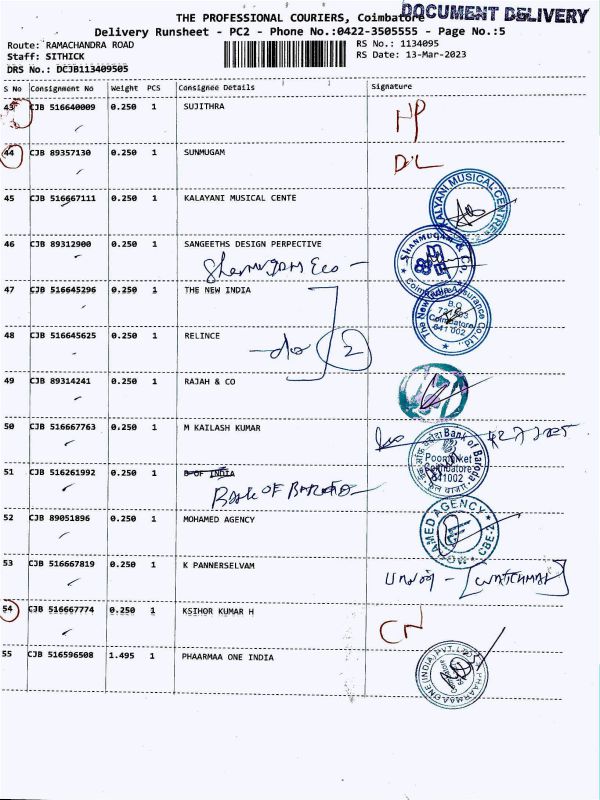 THE PROFESSIONAL COURIERS, Coimbatore
DOCUMENT DELIVERY
Delivery Runsheet - PC2 - Phone No.:0422-3505555 - Page No.:5
Route: RAMACHANDRA ROAD
RS No.: 1134095
Staff: SITHICK
RS Date: 13-Mar-2023
DRS No.: DCJB113409505
S No Consignment No Weight PCS Consignee Details Signature
43 CJB 516640009 0.250 1 SUJITHRA
NP
44 CJB 89357130 0.250 1 SUNMUGAM
D/L
45 CJB 516667111 0.250 1 KALAYANI MUSICAL CENTE
KALYANI MUSICAL CENTRE
46 CJB 89312900 0.250 1 SANGEETHS DESIGN PERPECTIVE
Shanmugam &co
SHANMUGAM & Co.
Coimbatore
47 CJB 516645296 0.250 1 THE NEW INDIA
The New India Assurance Co. Ltd.
B.O
Coimbatore
641 002
48 CJB 516645625 0.250 1 RELINCE
do 2
49 CJB 89314241 0.250 1 RAJAH & CO
50 CJB 516667763 0.250 1 M KAILASH KUMAR
51 CJB 516261992 0.250 1 B OF INDIA
BANK OF BARODA
Bank of Baroda
Poomarket
Coimbatore
641002
52 CJB 89051896 0.250 1 MOHAMED AGENCY
MOHAMED AGENCY
CBE-2
53 CJB 516667819 0.250 1 K PANNERSELVAM
[WATCHMAN]
54 CJB 516667774 0.250 1 KSIHOR KUMAR H
CN
55 CJB 516596508 1.495 1 PHAARMAA ONE INDIA
PHAARMAA ONE (INDIA) PVT. LTD.